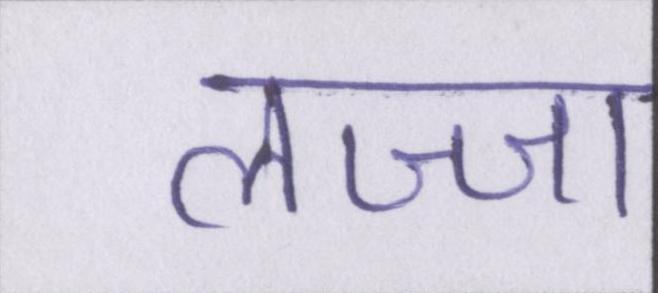 लज्जा